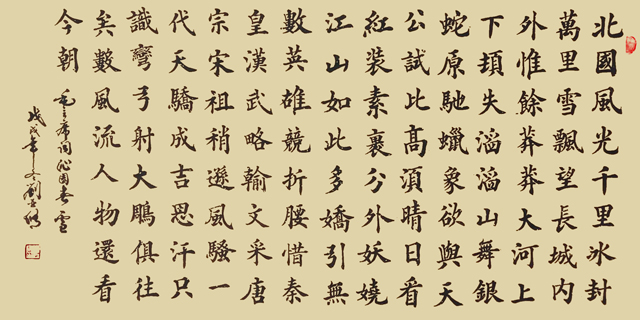 北國風光千里冰封
萬里雪飄望長城內
外惟餘莽莽大河上
下頓失滔滔山舞銀
蛇原馳蠟象欲與天
公試比高須晴日看
紅裝素裹分外妖嬈
江山如此多嬌引無
數英雄競折腰惜秦
皇漢武略輸文采唐
宗宋祖稍遜風騷一
代天驕成吉思汗只
識彎弓射大鵰俱往
矣數風流人物還看
今朝
毛主席詞沁園春雪
戊戌年冬劉